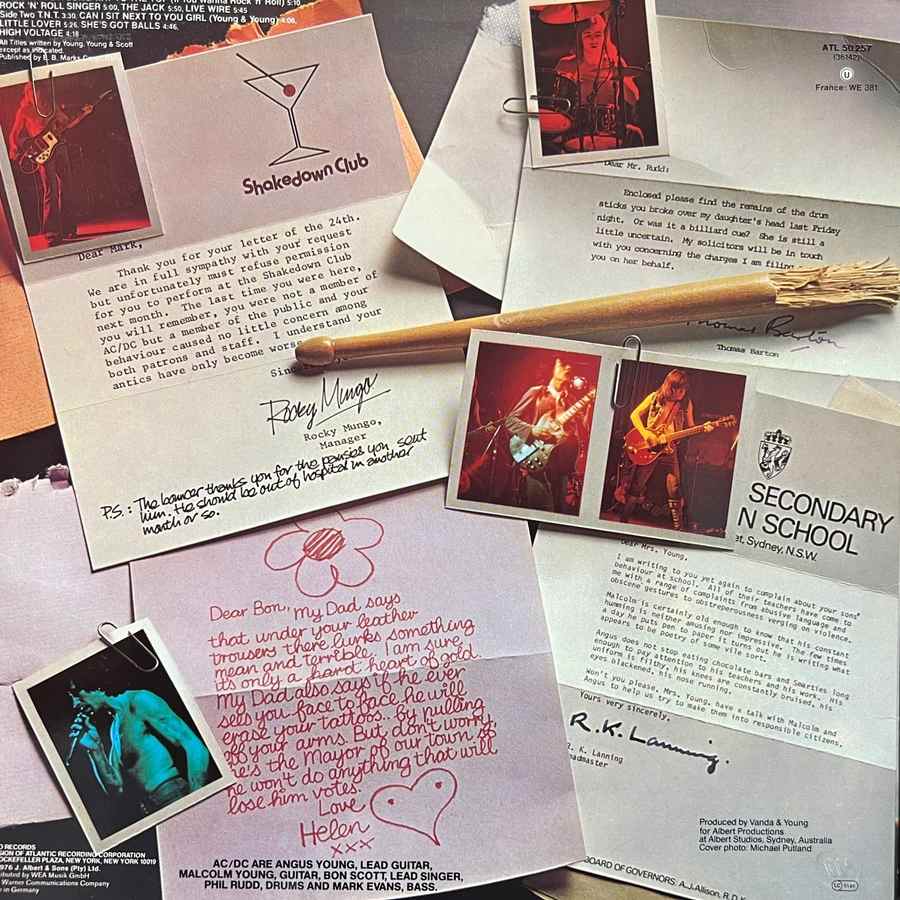 ROCK 'N' ROLL SINGER 5:00, THE JACK 5:50, LIVE WIRE 5:45
Side Two T.N.T. 3:30, CAN I SIT NEXT TO YOU GIRL (Young & Young) 4:08,
LITTLE LOVER 5:26, SHE'S GOT BALLS 4:46,
HIGH VOLTAGE 4:18
All Titles written by Young, Young & Scott
except as indicated.
Published by E. B. Marks
Shakedown Club
Dear Mark,
Thank you for your letter of the 24th.
We are in full sympathy with your request
but unfortunately must refuse permission
for you to perform at the Shakedown Club
next month. The last time you were here,
you will remember, you were not a member of
AC/DC but a member of the public and your
behaviour caused no little concern among
both patrons and staff. I understand your
antics have only become worse
Rocky Mungo
Rocky Mungo,
Manager
P.S.: The bouncer thanks you for the pansies you sent
him. He should be out of hospital in another
month or so.
ATL 50 257
(36142)
U
France: WE 381
Dear Mr. Rudd:
Enclosed please find the remains of the drum
sticks you broke over my daughter's head last Friday
night. Or was it a billiard cue? She is still a
little uncertain. My solicitors will be in touch
with you concerning the charges I am filing
you on her behalf.
Thomas Barton
Thomas Barton
SECONDARY
N SCHOOL
et, Sydney, N.S.W.
Dear Mrs. Young,
I am writing to you yet again to complain about your sons'
behaviour at school. All of their teachers have come to
me with a range of complaints from abusive language and
obscene gestures to obstreperousness verging on violence.
Malcolm is certainly old enough to know that his constant
humming is neither amusing nor impressive. The few times
a day he puts pen to paper it turns out he is writing what
appears to be poetry of some vile sort.
Angus does not stop eating chocolate bars and Smarties long
enough to pay attention to his teachers and his work. His
uniform is filthy, his knees are constantly bruised, his
eyes blackened, his nose running.
Won't you please, Mrs. Young, have a talk with Malcolm and
Angus to help us try to make them into responsible citizens.
Yours very sincerely,
R.K. Lanning.
R. K. Lanning
admaster
Dear Bon, My Dad says
that under your leather
trousers there lurks something
mean and terrible. I am sure
its only a hard heart of gold.
My Dad also says if he ever
sees you face to face he will
erase your tattoos.. By pulling
off your arms. But don't worry,
he's the Mayor of our town so
he won't do anything that will
lose him votes.
Love
Helen
xxx
AC/DC ARE ANGUS YOUNG, LEAD GUITAR,
MALCOLM YOUNG, GUITAR, BON SCOTT, LEAD SINGER,
PHIL RUDD, DRUMS AND MARK EVANS, BASS.
Produced by Vanda & Young
for Albert Productions
at Albert Studios, Sydney, Australia
Cover photo: Michael Putland
BOARD OF GOVERNORS: A.J. Allison, R.D.K.
RECORDS
SION OF ATLANTIC RECORDING CORPORATION
OCKEFELLER PLAZA, NEW YORK, NEW YORK 10019
976 J. Albert & Sons (Pty) Ltd.
ributed by WEA Musik GmbH
Warner Communications Company
in Germany